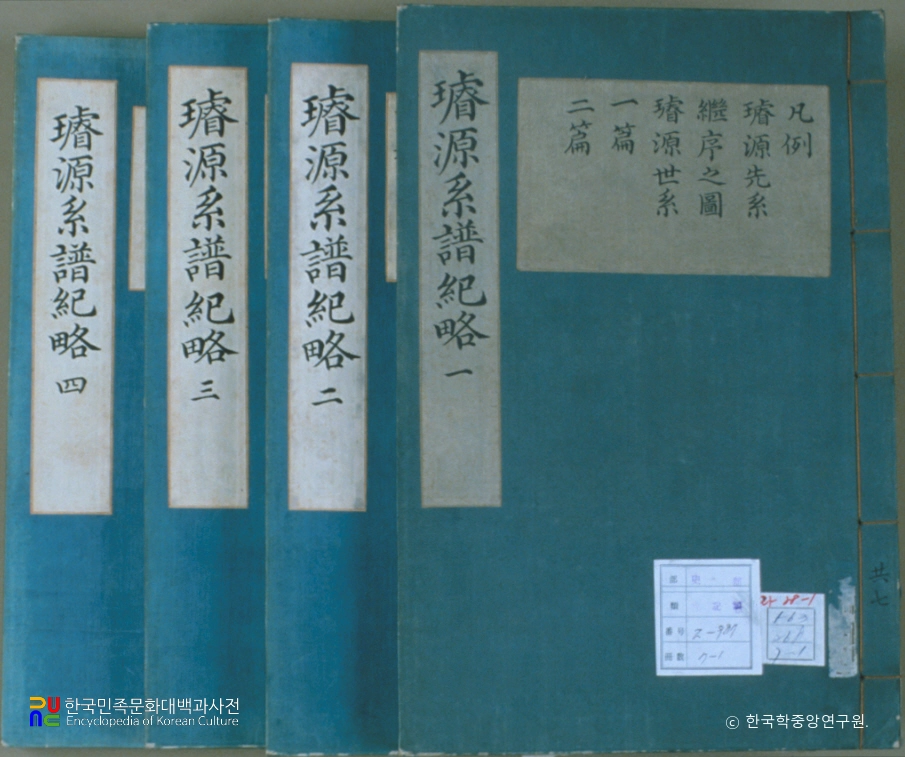 凡例
璿源先系
繼序之圖
璿源世系
一篇
二篇
璿源系譜紀略 一
璿源系譜紀略 二
璿源系譜紀略 三
璿源系譜紀略 四
共七
部
類
番号
冊數
7-1
한국민족문화대백과사전
Encyclopedia of Korean Culture
© 한국학중앙연구원.